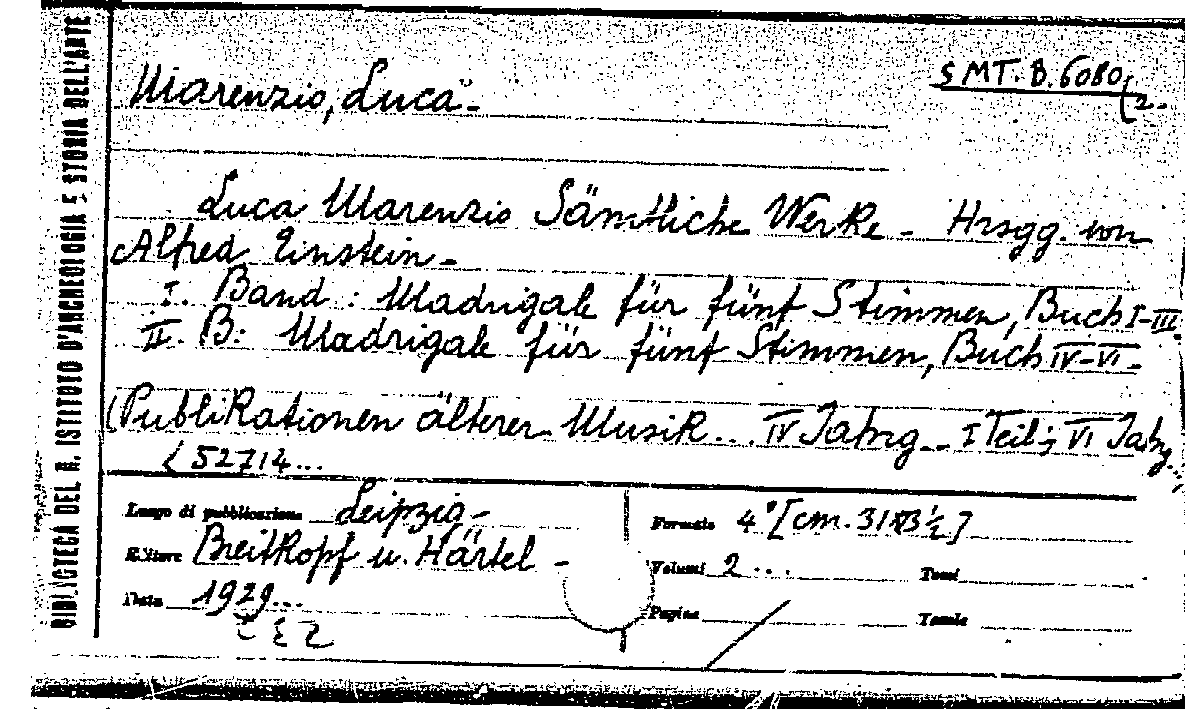 BIBLIOTECA DEL R. ISTITUTO D'ARCHEOLOGIA E STORIA DELL'ARTE
SMT. B. 6080/2.
Marenzio, Luca -
Luca Marenzio Sämtliche Werke - Hrsgg. von
Alfred Einstein -
I. Band : Madrigale für fünf Stimmen, Buch I-III.
II. B: Madrigale für fünf Stimmen, Buch IV-VI -
(Publikationen älterer Musik... IV Jahrg - I Teil; VI Jahrg...
52714...
Luogo di pubblicazione Leipzig -
Editore Breitkopf u. Härtel -
Data 1929...
Formato 4° [cm.
Volumi 2 ...
Tomi
Pagine /
Tavole